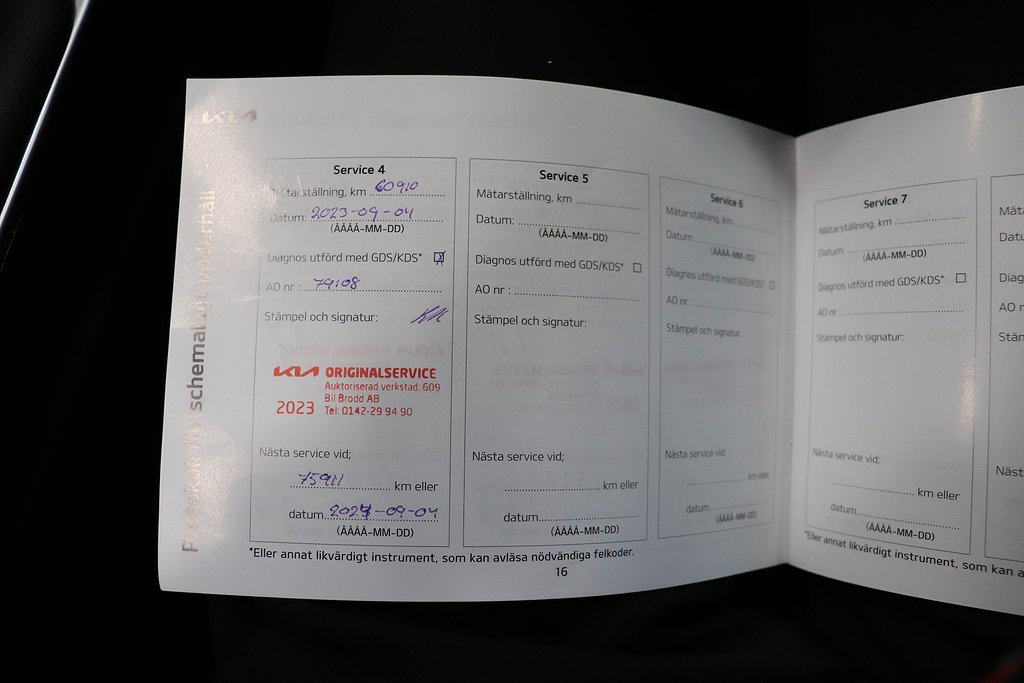 KIA
Protokoll för schemalagt underhåll
schemalagt underhåll
Service 4
Mätarställning, km 60910
Datum: 2023-09-04
(ÅÅÅÅ-MM-DD)
Diagnos utförd med GDS/KDS*
AO nr : 79108
Stämpel och signatur:
KIA ORIGINALSERVICE
Auktoriserad verkstad: 609
Bil Brodd AB
2023 Tel: 0142-29 94 90
Nästa service vid;
75911 km eller
datum 2024-09-04
(ÅÅÅÅ-MM-DD)
Service 5
Mätarställning, km
Datum:
(ÅÅÅÅ-MM-DD)
Diagnos utförd med GDS/KDS*
AO nr :
Stämpel och signatur:
Nästa service vid;
km eller
datum
(ÅÅÅÅ-MM-DD)
Service 6
Mätarställning, km
Datum:
(ÅÅÅÅ-MM-DD)
Diagnos utförd med GDS/KDS*
AO nr :
Stämpel och signatur:
Nästa service vid;
km eller
datum
(ÅÅÅÅ-MM-DD)
*Eller annat likvärdigt instrument, som kan avläsa nödvändiga felkoder.
16
Service 7
Mätarställning, km
Datum:
(ÅÅÅÅ-MM-DD)
Diagnos utförd med GDS/KDS*
AO nr :
Stämpel och signatur:
Nästa service vid;
km eller
datum
(ÅÅÅÅ-MM-DD)
*Eller annat likvärdigt instrument, som kan a
Mäta
Datu
Diag
AO n
Stän
Näst